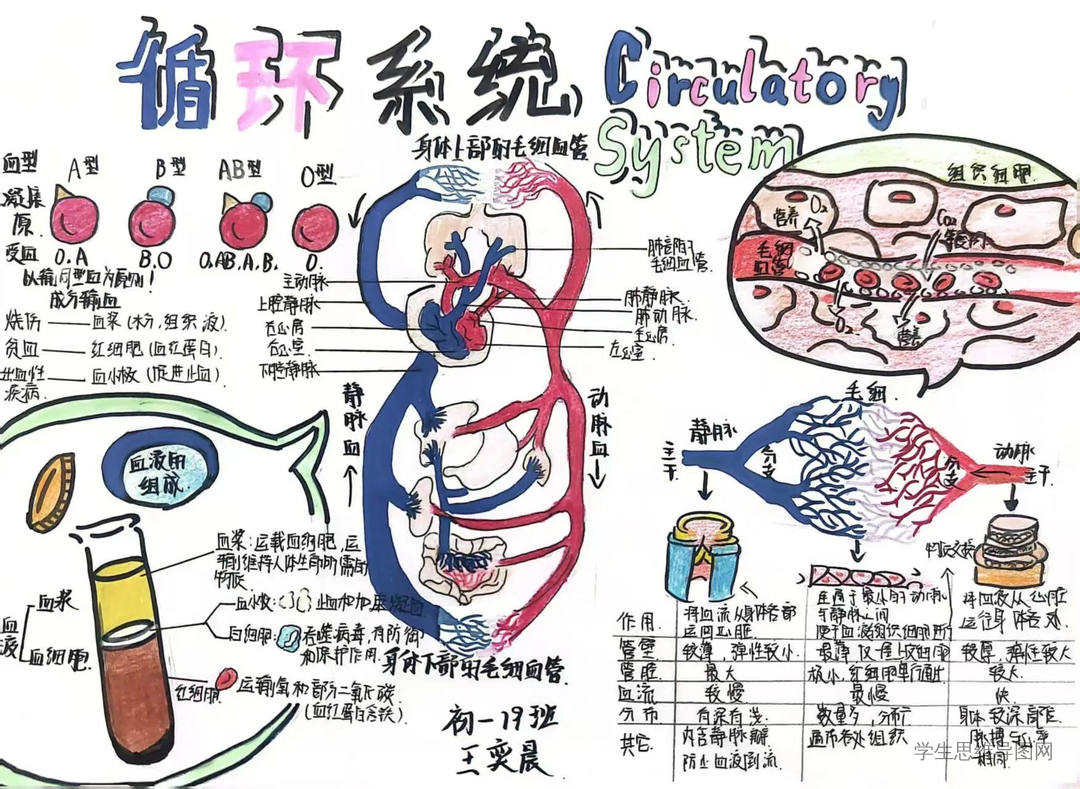 循环系统 Circulatory
System
血型 A型 B型 AB型 O型
凝集
原
受血 O.A B.O O.AB.A.B. O
以输同型血为原则!
成分输血
烧伤 —— 血浆(水分,组织液)
贫血 —— 红细胞(血红蛋白)
出血性
疾病 —— 血小板(促进止血)
血液的
组成
血浆:运载血细胞,运
血小板:
白细胞:吞噬病毒,有防御
和保护作用.
红细胞
运输氧和部分二氧化碳
(血红蛋白含铁)
血浆
血液
血细胞
身体上部的毛细血管
主动脉
上腔静脉
右心房
右心室
下腔静脉
肺部的
毛细血管
肺静脉
肺动脉
左心房
左心室
静脉血
动脉血
身体下部的毛细血管
初一19班
王奕晨
组织细胞
营养 O₂
CO₂
毛细
血管
O₂
营养
毛细
静脉
主干
分支
分支
动脉
主干
物质交换
作用. 将血流从身体各部
运回心脏
连属于最小的动脉
与静脉之间
将血液从心脏
运行身体各处.
管壁 较薄,弹性较小 较厚,弹性较大
管腔 最大 极小,红细胞单行通过 较大.
血流 较慢 最慢 快
分布 有深有浅. 数量多,分布广
遍布各处组织
身体较深部位.
其它. 内含静脉瓣
防止血液倒流.
脉搏与心率
相同.
学生思维导图网